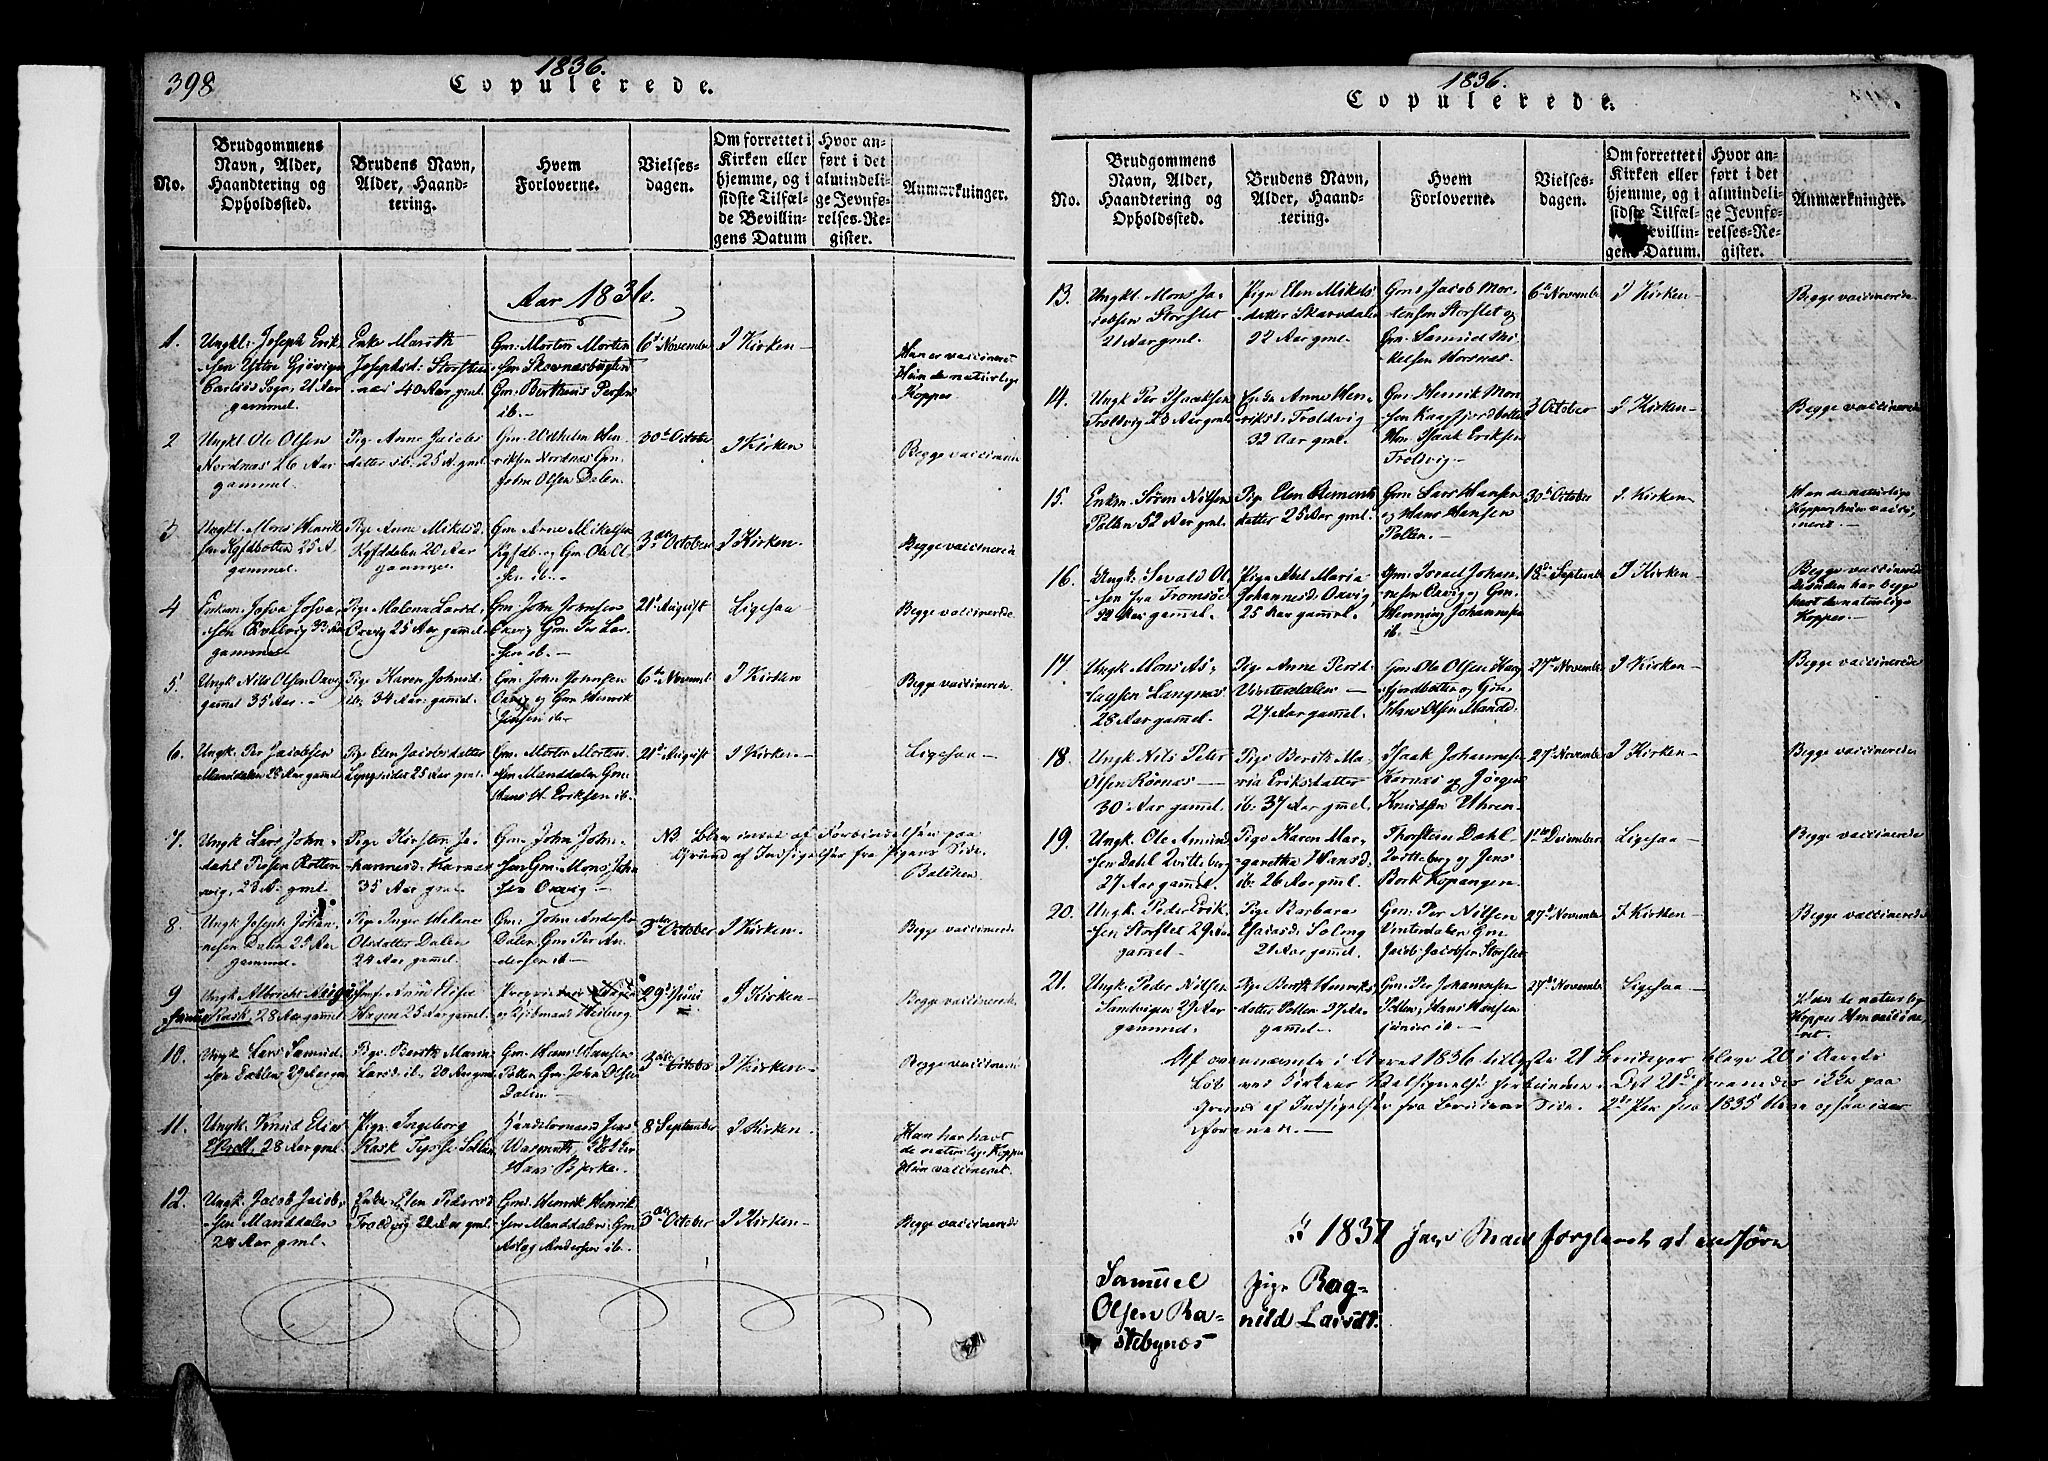 398
1836.
Copulerede.
No.
Brudgommens Navn, Alder, Haandtering og Opholdssted.
Brudens Navn, Alder, Haandtering.
Hvem Forloverne.
Vielsesdagen.
Om forrettet i Kirken eller hjemme, og i sidste Tilfælde Bevillingens Datum
Hvor anført i det almindelige Jevnførelses-Register.
Anmærkninger.
Aar 1836.
1.
Ungkl: Joseph Erik-
sen Gjövigen
Carlsös Sogn 21 Aar
gammel.
Enke Marith
Josephsd: Storsten-
40 Aar gml.
Gm: Morten Morten
sen
Gm: Persen
ib.
6t November
I Kirken
Han er vaccineret
Hun de naturlige
Kopper
2
Ungkl. Ole Olsen
Nordnæs 26 Aar
gammel.
Pige Anne Jacobs
datter ib. 25 A. gml.
Gm: Wilhelm Hen-
riksen Nordnæs Gm.
John Olsen Dalen
30t October
I Kirken
Begge vaccinerede
3
Ungkl. Mons Henrik-
sen 25 A.
gammel.
Pige Anne Mikelsd.
20 Aar
gammel
Gm Arne Mikelsen
og Gm: Ole Ol-
sen ib.
3de October
I Kirken.
Begge vaccinerede
4
Enkem: Josva Josva-
sen 33 Aar
gammel
Pige Malena Larsd.
Oxvig 25 Aar gammel.
Gm John Johnsen
Oxvig Gm: Per Lar-
sen ib.
21t August
Ligesaa
Begge vaccinerede
5.
Ungk Nils Olsen Oxvig
gammel 35 Aar.
Pige Karen Johnsd.
ib: 34 Aar gammel.
Gm: John Johnsen
Oxvig og Gm Henrik
Jensen ib
6te Novembr
I Kirken
Begge vaccinerede.
6.
Ungk: Per Jacobsen
Manddalen 28 Aar gammel
Pige Elen Jacobsdatter
Lyngsidet 25 Aar gml.
Gm: Morten Morten-
sen Manddalen Gm:
Hans H. Eriksen ib.
21t August
I Kirken
Ligesaa
7.
Ungk: Lars John
dahl Rotten-
vig, 28 A. gml.
Pige Kirsten Jo-
hannesd: Karnes
35 Aar gml
Gm: John John-
sen Gm. Mons John
sen Oxvig
NB. Blev intet af Forbindelsen paa
Grund af Indsigelser fra Pigens Side.
8.
Ungk Joseph Johan-
nesen Dalen 23 Aar
gammel.
Pige Inger Helene
Olsdatter Dalen
24 Aar gammel.
Gm: John Anderse
Dalen Gm: Per An-
dersen ib
3de October
I Kirken
Begge vaccinerede
9
Ungk Albricht August
Rask, 28 Aar gammel
Anne Elise
Hagen 25 Aar gammel.
Proprietair
og Kjöbmand Heiberg
29t Juni
I Kirken
Begge vaccinerede.
10.
Ungk: Lars Samuel-
sen 29 Aar gml
Pige Berith Maria
Larsd: ib. 20 Aar gml
Gm: Hans Hansen
Pollen Gm: John Olsen
Dalen
3de October
I Kirken
Begge vaccinerede
11.
Ungk: Knud Elias
28 Aar gml.
Pige Ingeborg
Rask
Handelsmand Jens
Hans Bjerke.
8 September
I Kirken
Han har havt
de naturlige Kopper
Hun vaccineret.
12.
Ungk. Jacob Jacob-
sen Manddalen
28 Aar gml.
Enke Elen Pedersd
Troldvig 22 Aar gml.
Gm: Henrik Henrik
sen Manddalen Gm
Aslag Andersen ib.
3de October
I Kirken
Begge vaccinerede
1836.
Copulerede.
No.
Brudgommens Navn, Alder, Haandtering og Opholdssted.
Brudens Navn, Alder, Haandtering.
Hvem Forloverne.
Vielsesdagen.
Om forrettet i Kirken eller hjemme, og i sidste Tilfælde Bevillingens Datum.
Hvor anført i det almindelige Jevnførelses-Register.
Anmærkninger.
13.
Ungkl. Mons Ja-
cobsen Storslet
21 Aar gml.
Pige Elen Mikels
datter Skarvdalen
22 Aar gml.
Gm: Jacob Mor-
tensen Storslet og
Gm: Samuel Mi-
kelsen Nordnæs.
6te November
I Kirken
Begge vaccinerede
14.
Ungk Per Isaksen
Troldvig 23 Aar gml.
Enke Anne Hen-
riksd: Troldvig
32 Aar gml.
Gm: Henrik Mon
sen Kaafjordbotten
Isaak Eriksen
Troldvig
3 October
I Kirken
Begge vaccinerede
15.
Enkem: Sören Nilsen
Pollen 52 Aar gml.
Pige Elen Clements
datter 25 Aar gml.
Gm: Lars Hansen
og Hans Hansen
Pollen.
30t October
I Kirken
Han de naturlige
Kopper, hun vacci-
neret.
16.
Ungk: Sevald Ol-
sen fra Tromsöe
32 Aar gammel.
Pige Abel Maria
Johannesd: Oxvig
25 Aar gammel.
Gm: Israel Johan
nesen Oxvig og Gm:
Henning Johannesen
ib.
18de September
I Kirken
Begge vaccinerede
desuden har begge
havt de naturlige
Kopper.
17.
Ungk Mons As-
lagsen Langnæs
28 Aar gammel.
Pige Anne Persd.
Vinterdalen
27 Aar gammel.
Gm: Ole Olsen Kaa-
fjordbotten og Gm:
Hans Olsen Mandd.
27de November
I Kirken
Begge vaccinerede
18.
Ungk Nils Peter
Olsen Kornæs
30 Aar gammel.
Pige Berith Ma-
ria Eriksdatter
ib: 37 Aar gmel.
Isaak Johannesen
Kornæs og Jörgen
Knudsen Uhren.
27de November
I Kirken
Begge vaccinerede
19.
Ungk. Ole Amund-
sen Dahl Qvitteberg
27 Aar gammel.
Pige Karen Mar-
garetha Hansd:
ib: 26 Aar gml.
Thorstein Dahl
Qvitteberg og Jens
Bork Kopangen.
1ste December
Ligesaa
Begge vaccinerede
20.
Ungk. Peder Erik-
sen Storslet 29 Aar
gammel.
Pige Barbara
Esaiasd: Soleng
21 Aar gammel.
Gm: Per Nilsen
Vinterdalen Gm
Jacob Jacobsen Storslet
27de November
I Kirken
Begge vaccinerede
21.
Ungk Peder Nilsen
Sandvigen 29 Aar
gammel.
Pige Berith Henriks
datter Pollen 27 Aar
gammel.
Gm: Per Johannesen
Pollen, Hans Hansen
junior ib.
27de November
Ligesaa
Han de naturlige
Kopper Hun vaccine-
ret.
Af ovennævnte i Aaret 1836 tillyste 21 Brudepar bleve 20 i Aarets
Löb ved Kirkens Velsignelse forbundne. Det 21de ikke paa
Grund af Indsigelser fra Brudens Side. 2de Par fra 1835 ere ogsaa
foreenede.
1837 Par forglemt at indföre
Samuel
Olsen Ra-
stebynes
Pige Rag-
nild Larsdt.